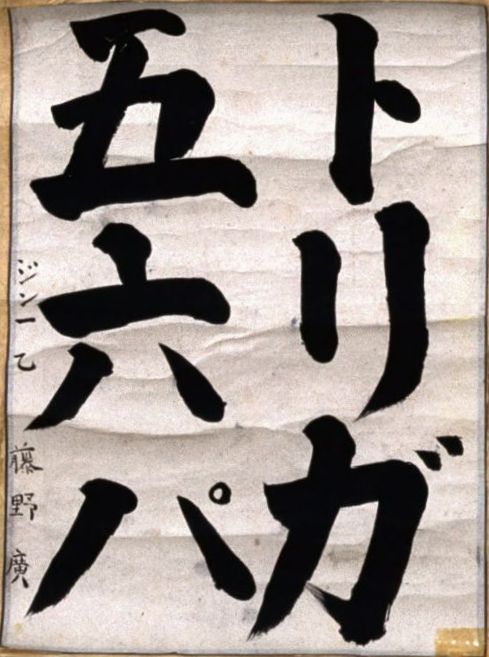 トリガ
五六パ
ジン一乙 藤野廣